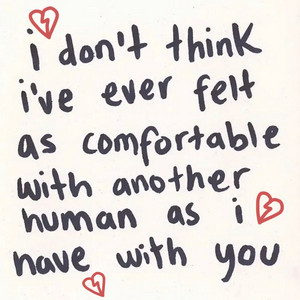 i don't think
i've ever felt
as comfortable
with another
human as i
have with you